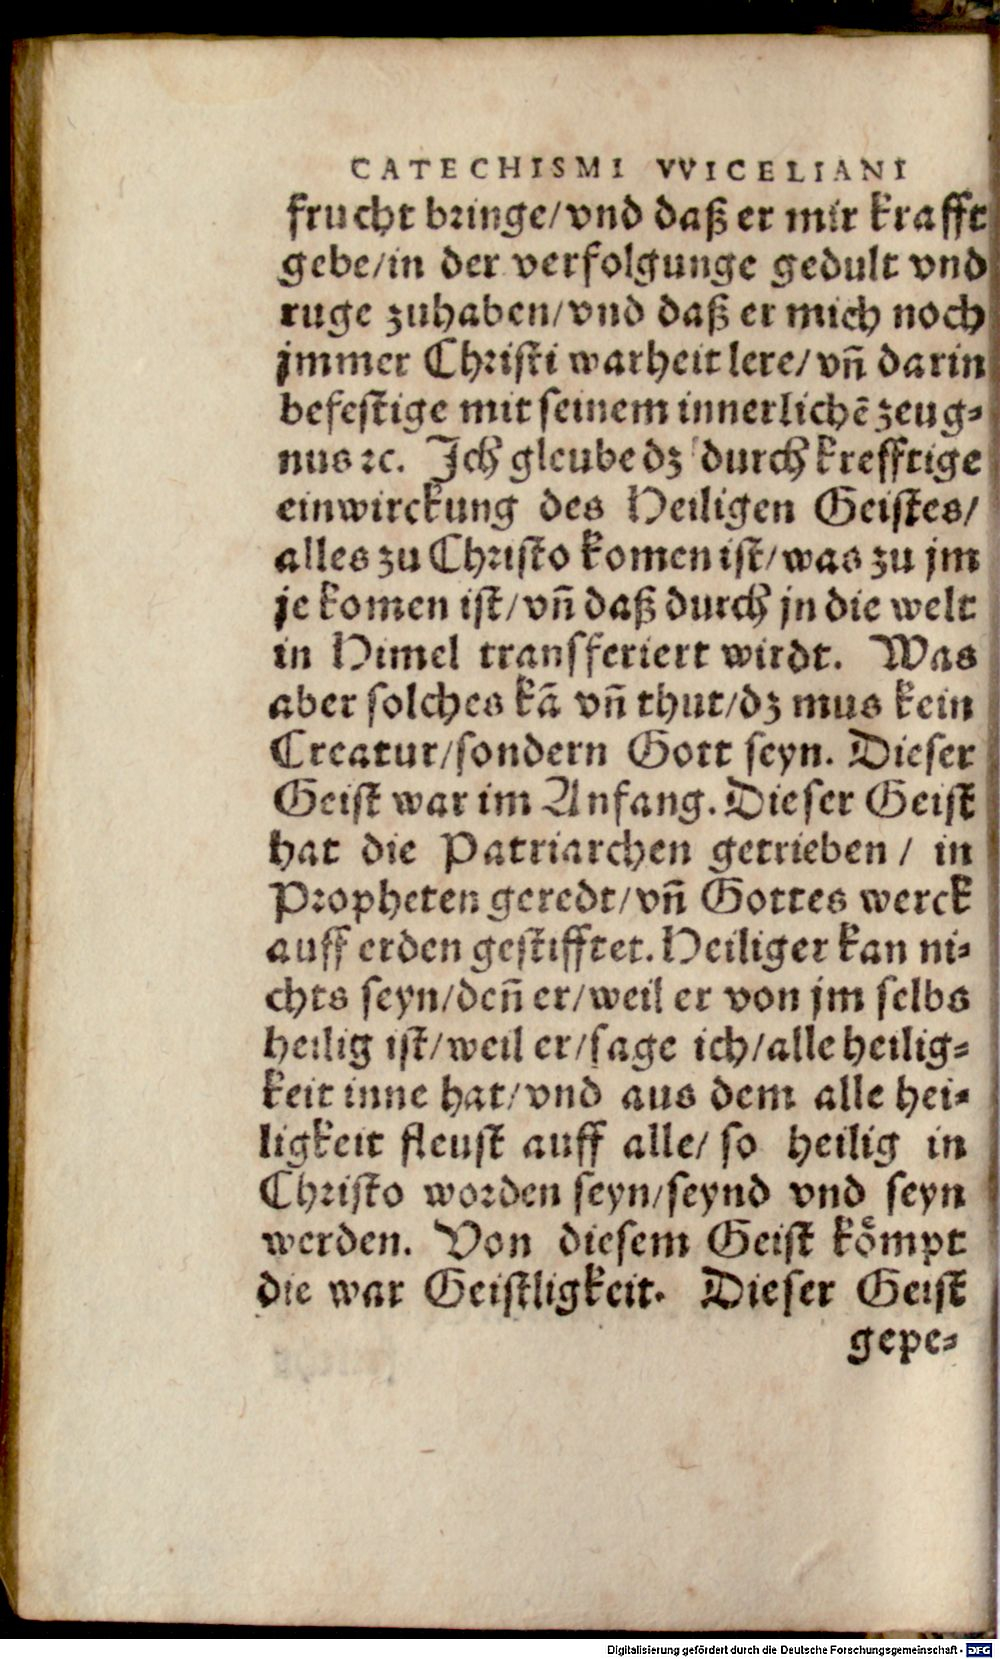 CATECHISMI VVICELIANI
frucht bringe/vnd daß er mir krafft
gebe/in der verfolgunge gedult vnd
ruge zuhaben/vnd daß er mich noch
jmmer Christi warheit lere/vñ darin
befestige mit seinem innerlichẽ zeug-
nus ꝛc. Ich gleube dz durch krefftige
einwirckung des Heiligen Geistes/
alles zu Christo komen ist/was zu jm
je komen ist/vñ daß durch jn die welt
in Himel transferiert wirdt. Was
aber solches kã vñ thut/dz mus kein
Creatur/sondern Gott seyn. Dieser
Geist war im Anfang. Dieser Geist
hat die Patriarchen getrieben / in
Propheten geredt/vñ Gottes werck
auff erden gestifftet. Heiliger kan ni-
chts seyn/deñ er/weil er von jm selbs
heilig ist/weil er/sage ich/alle heilig-
keit inne hat/vnd aus dem alle hei-
ligkeit fleust auff alle/ so heilig in
Christo worden seyn/seynd vnd seyn
werden. Von diesem Geist kömpt
die war Geistligkeit. Dieser Geist
gepe-
Digitalisierung gefördert durch die Deutsche Forschungsgemeinschaft - DFG